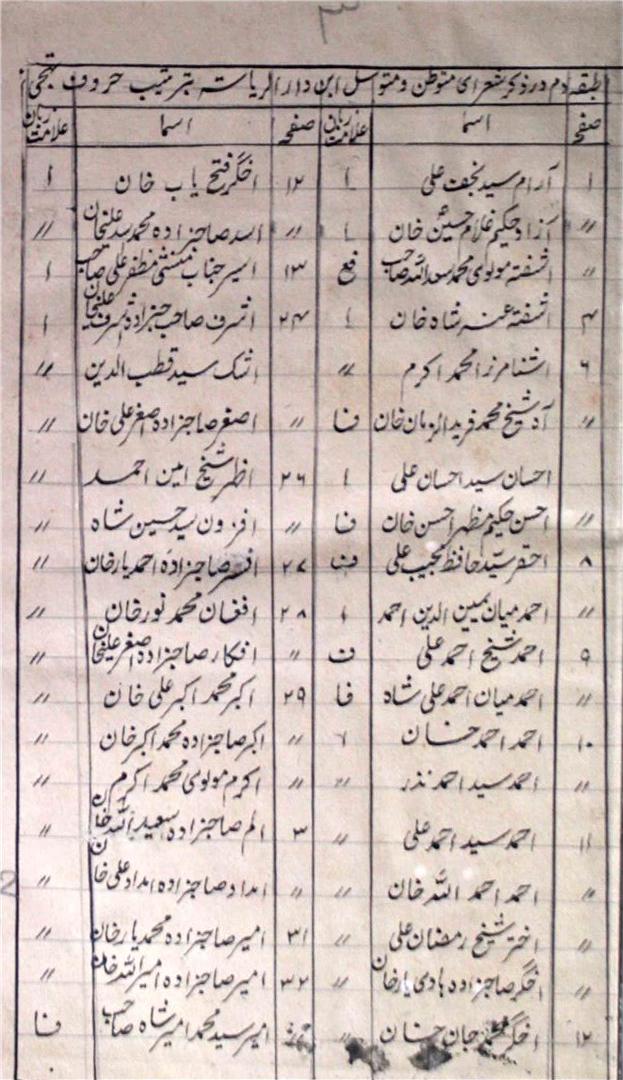 ۳
طبقہ دوم در ذکر شعرای متوطن و متوسل این دار الریاستہ بترتیب حروف تہجی
صفحہ اسما علامت زبان صفحہ اسما علامت زبان
۱ آرام سید نجف علی ا ۱۲ اخگر فتح یاب خان ا
〃 آزاد حکیم غلام حسین خان ا 〃 اسد صاحبزادہ محمد سد علیخان 〃
〃 آشفتہ مولوی محمد سعد اللہ صاحب فع ۱۳ اسیر جناب منشی مظفر علی صاحب ا
۴ آشفتہ عنبر شاہ خان ا ۲۴ اشرف صاحبزادہ اشرف علیخان ا
۶ آشنا مرزا محمد اکرم 〃 اشک سید قطب الدین 〃
〃 آہ شیخ محمد فرید الزمان خان فا 〃 اصغر صاحبزادہ اصغر علی خان 〃
احسان سید احسان علی ا ۲۶ اظہر شیخ امین احمد 〃
〃 احسن حکیم مظہر احسن خان فا 〃 افزون سید حسین شاہ 〃
۸ احقر سید حافظ مجیب علی فا ۲۷ افسر صاحبزادہ احمد یار خان 〃
〃 احمد میان یمین الدین احمد ا ۲۸ افغان محمد نور خان 〃
۹ احمد شیخ احمد علی ف 〃 افکار صاحبزادہ اصغر علیخان 〃
〃 احمد میان احمد علی شاہ فا ۲۹ اکبر محمد اکبر علی خان 〃
۱۰ احمد احمد خان ا 〃 اکبر صاحبزادہ محمد اکبر خان 〃
〃 احمد سید احمد نذر 〃 〃 اکرم مولوی محمد اکرم 〃
۱۱ احمد سید احمد علی 〃 ۳ الم صاحبزادہ سعید اللہ خان 〃
〃 احمد احمد اللہ خان 〃 〃 امداد صاحبزادہ امداد علی خان 〃
〃 اختر شیخ رمضان علی 〃 ۳۱ امیر صاحبزادہ محمد یار خان 〃
〃 اخگر صاحبزادہ ہادی یار خان 〃 ۳۲ امیر صاحبزادہ امیر اللہ خان 〃
۱۲ اخگر محمد جان خان 〃 امیر سید محمد امیر شاہ صاحب فا